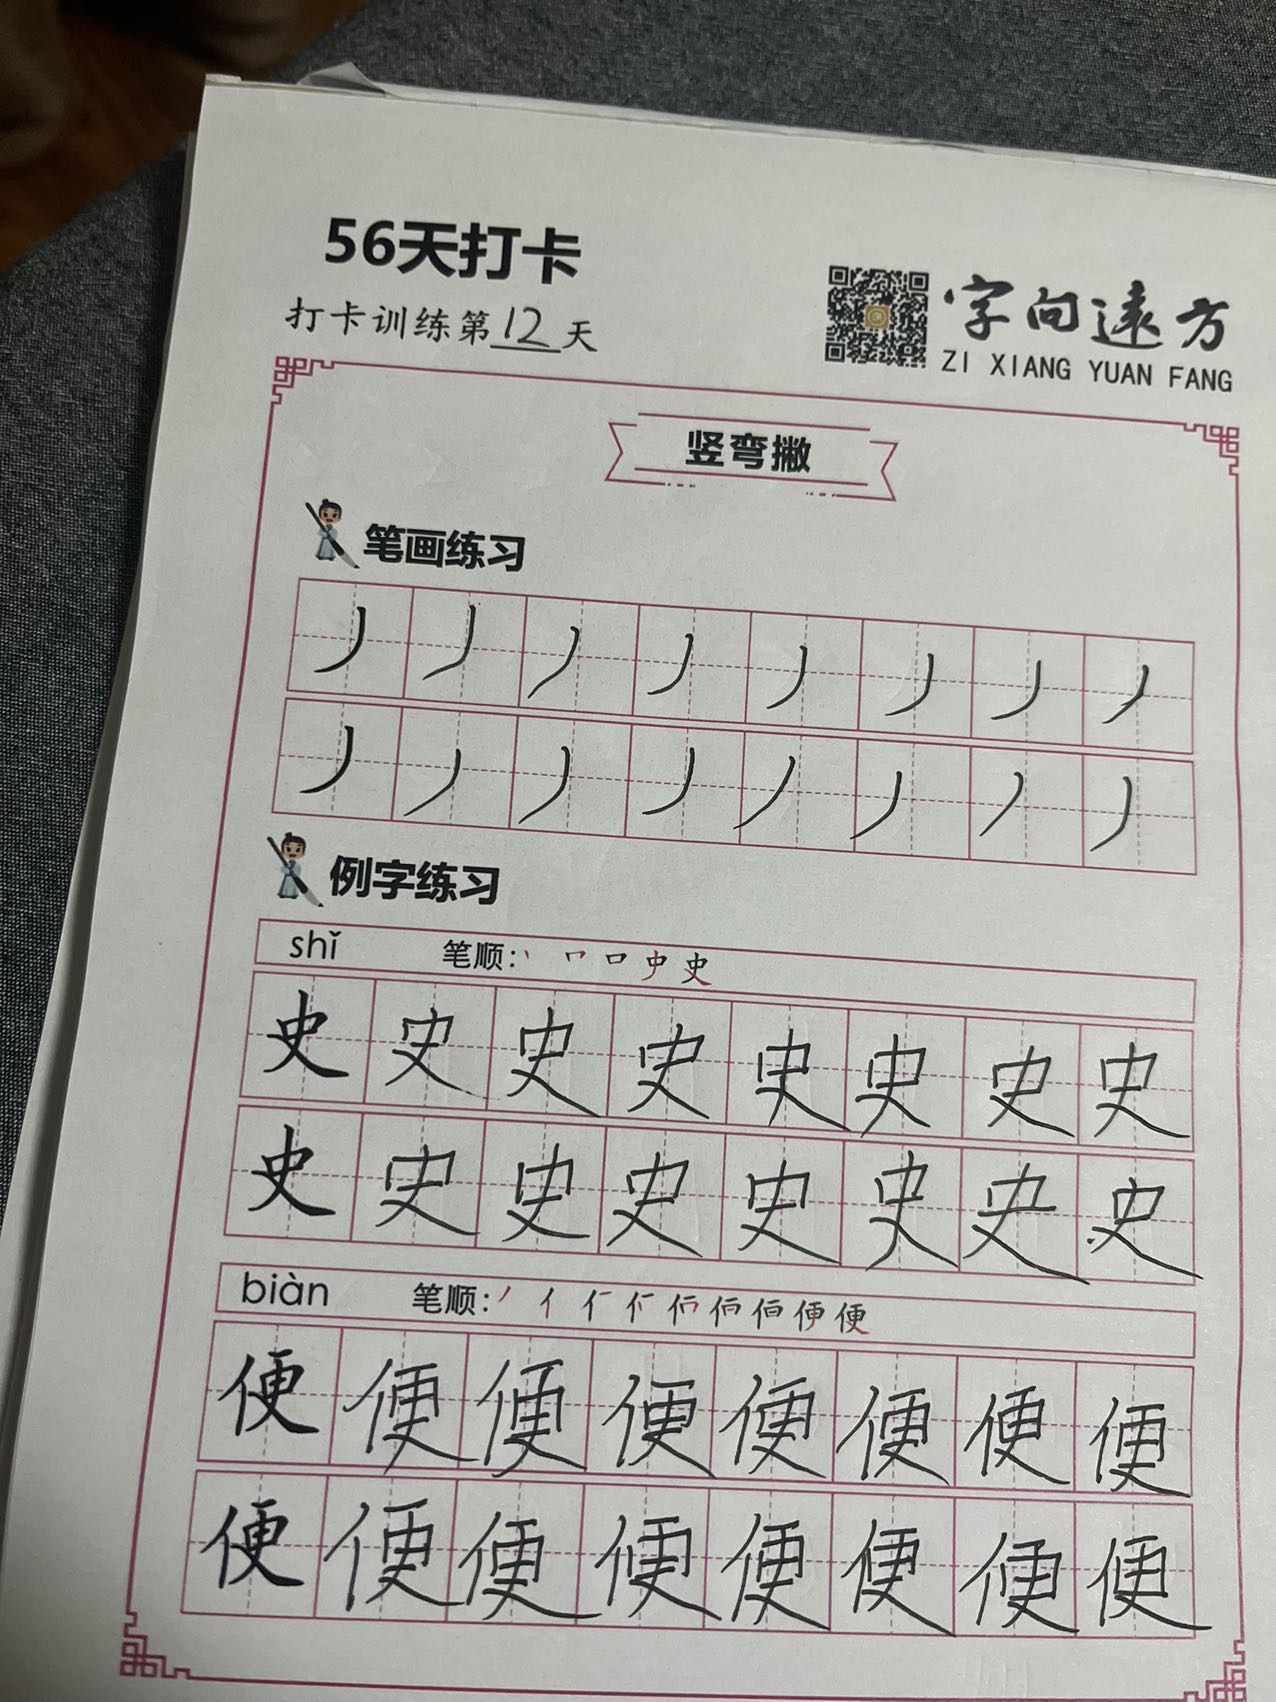 56天打卡
打卡训练第12天
字向远方
ZI XIANG YUAN FANG
竖弯撇
笔画练习
丿丿丿丿丿丿丿丿
丿丿丿丿丿丿丿丿
例字练习
shǐ 笔顺: 丨 口 史
史史史史史史史史
史史史史史史史史
biàn 笔顺: 丿 亻 便
便便便便便便便便
便便便便便便便便